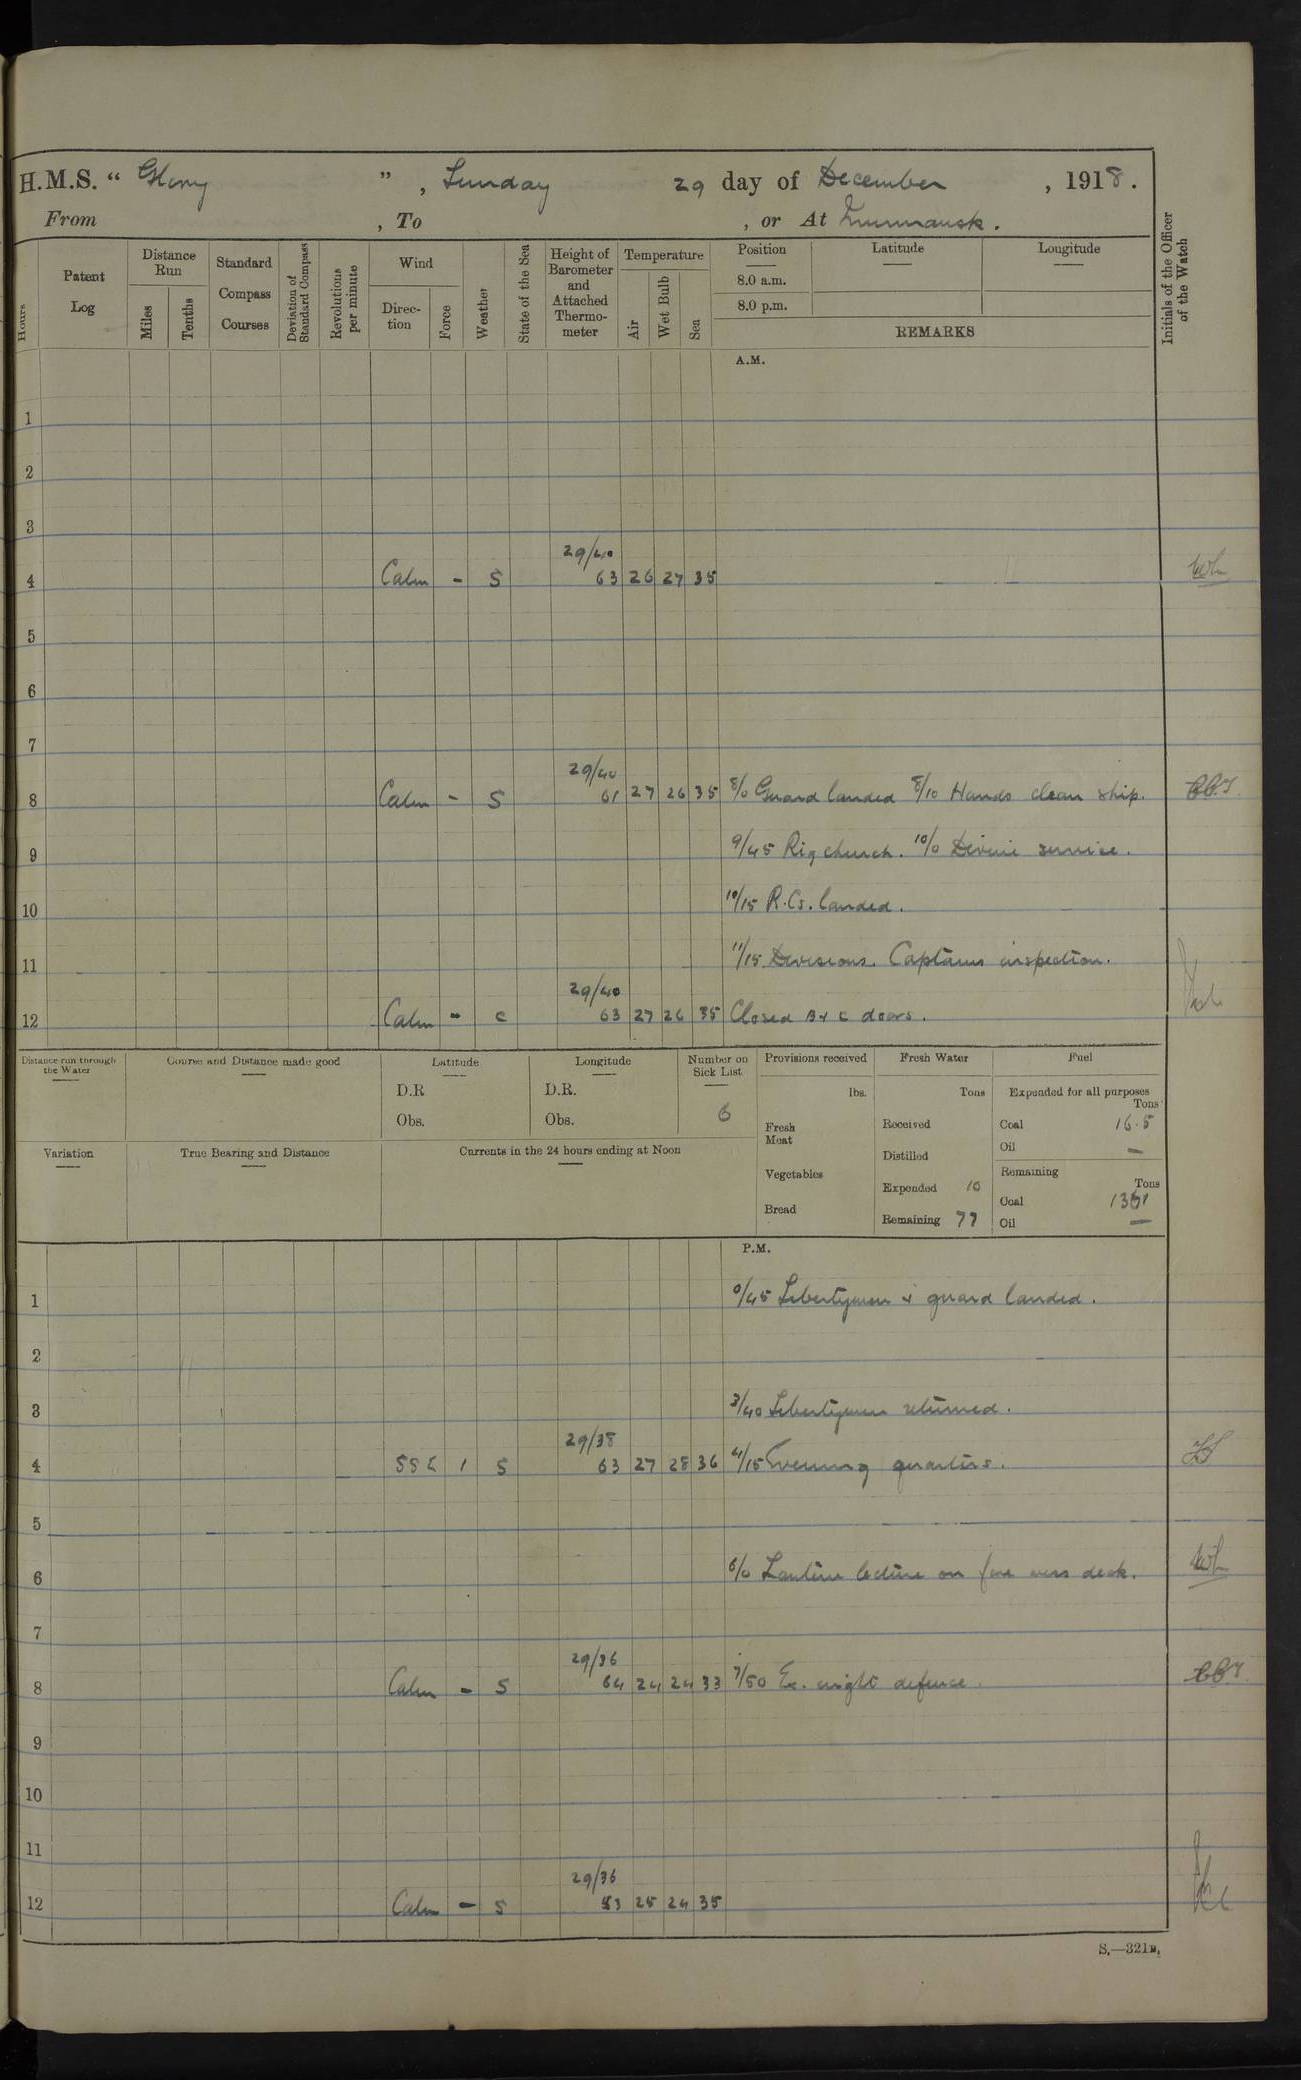 H.M.S. “ Glory ” , Sunday 29 day of December , 1918 .
From , To , or At Murmansk .
Hours
Patent Log
Distance Run
Miles
Tenths
Standard Compass Courses
Deviation of Standard Compass
Revolutions per minute
Wind
Direc-tion
Force
Weather
State of the Sea
Height of Barometer and Attached Thermo-meter
Temperature
Air
Wet Bulb
Sea
Position Latitude Longitude
8.0 a.m.
8.0 p.m.
REMARKS
Initials of the Officer of the Watch
A.M.
1
2
3
29/40
4 Calm - S 63 26 27 35
5
6
7
29/40
8 Calm - S 61 27 26 35 8/0 Guard landed 8/10 Hands clean ship.
9 9/45 Rig church. 10/0 Divine service.
10 10/15 R.Cs. landed.
11 11/15 Divisions. Captains inspection.
29/40
12 Calm - c 63 27 26 35 Closed B & C doors.
Distance run through the Water
Course and Distance made good
Latitude
D.R
Obs.
Longitude
D.R.
Obs.
Number on Sick List
6
Provisions received
lbs.
Fresh Meat
Vegetables
Bread
Fresh Water
Tons
Received
Distilled
Expended 10
Remaining 77
Fuel
Expended for all purposes
Tons
Coal 16.5
Oil —
Remaining
Tons
Coal
Oil —
Variation
True Bearing and Distance
Currents in the 24 hours ending at Noon
P.M.
1 0/45 Libertymen & guard landed.
2
3 3/40 Libertymen returned.
29/38
4 SSE 1 S 63 27 28 36 4/15 Evening quarters.
5
6 6/0 Lantern lecture on fore mess deck.
7
29/36
8 Calm - S 64 24 24 33 7/50 Ex. night defence.
9
10
11
29/36
12 Calm - S 53 25 24 35
S.—321B.